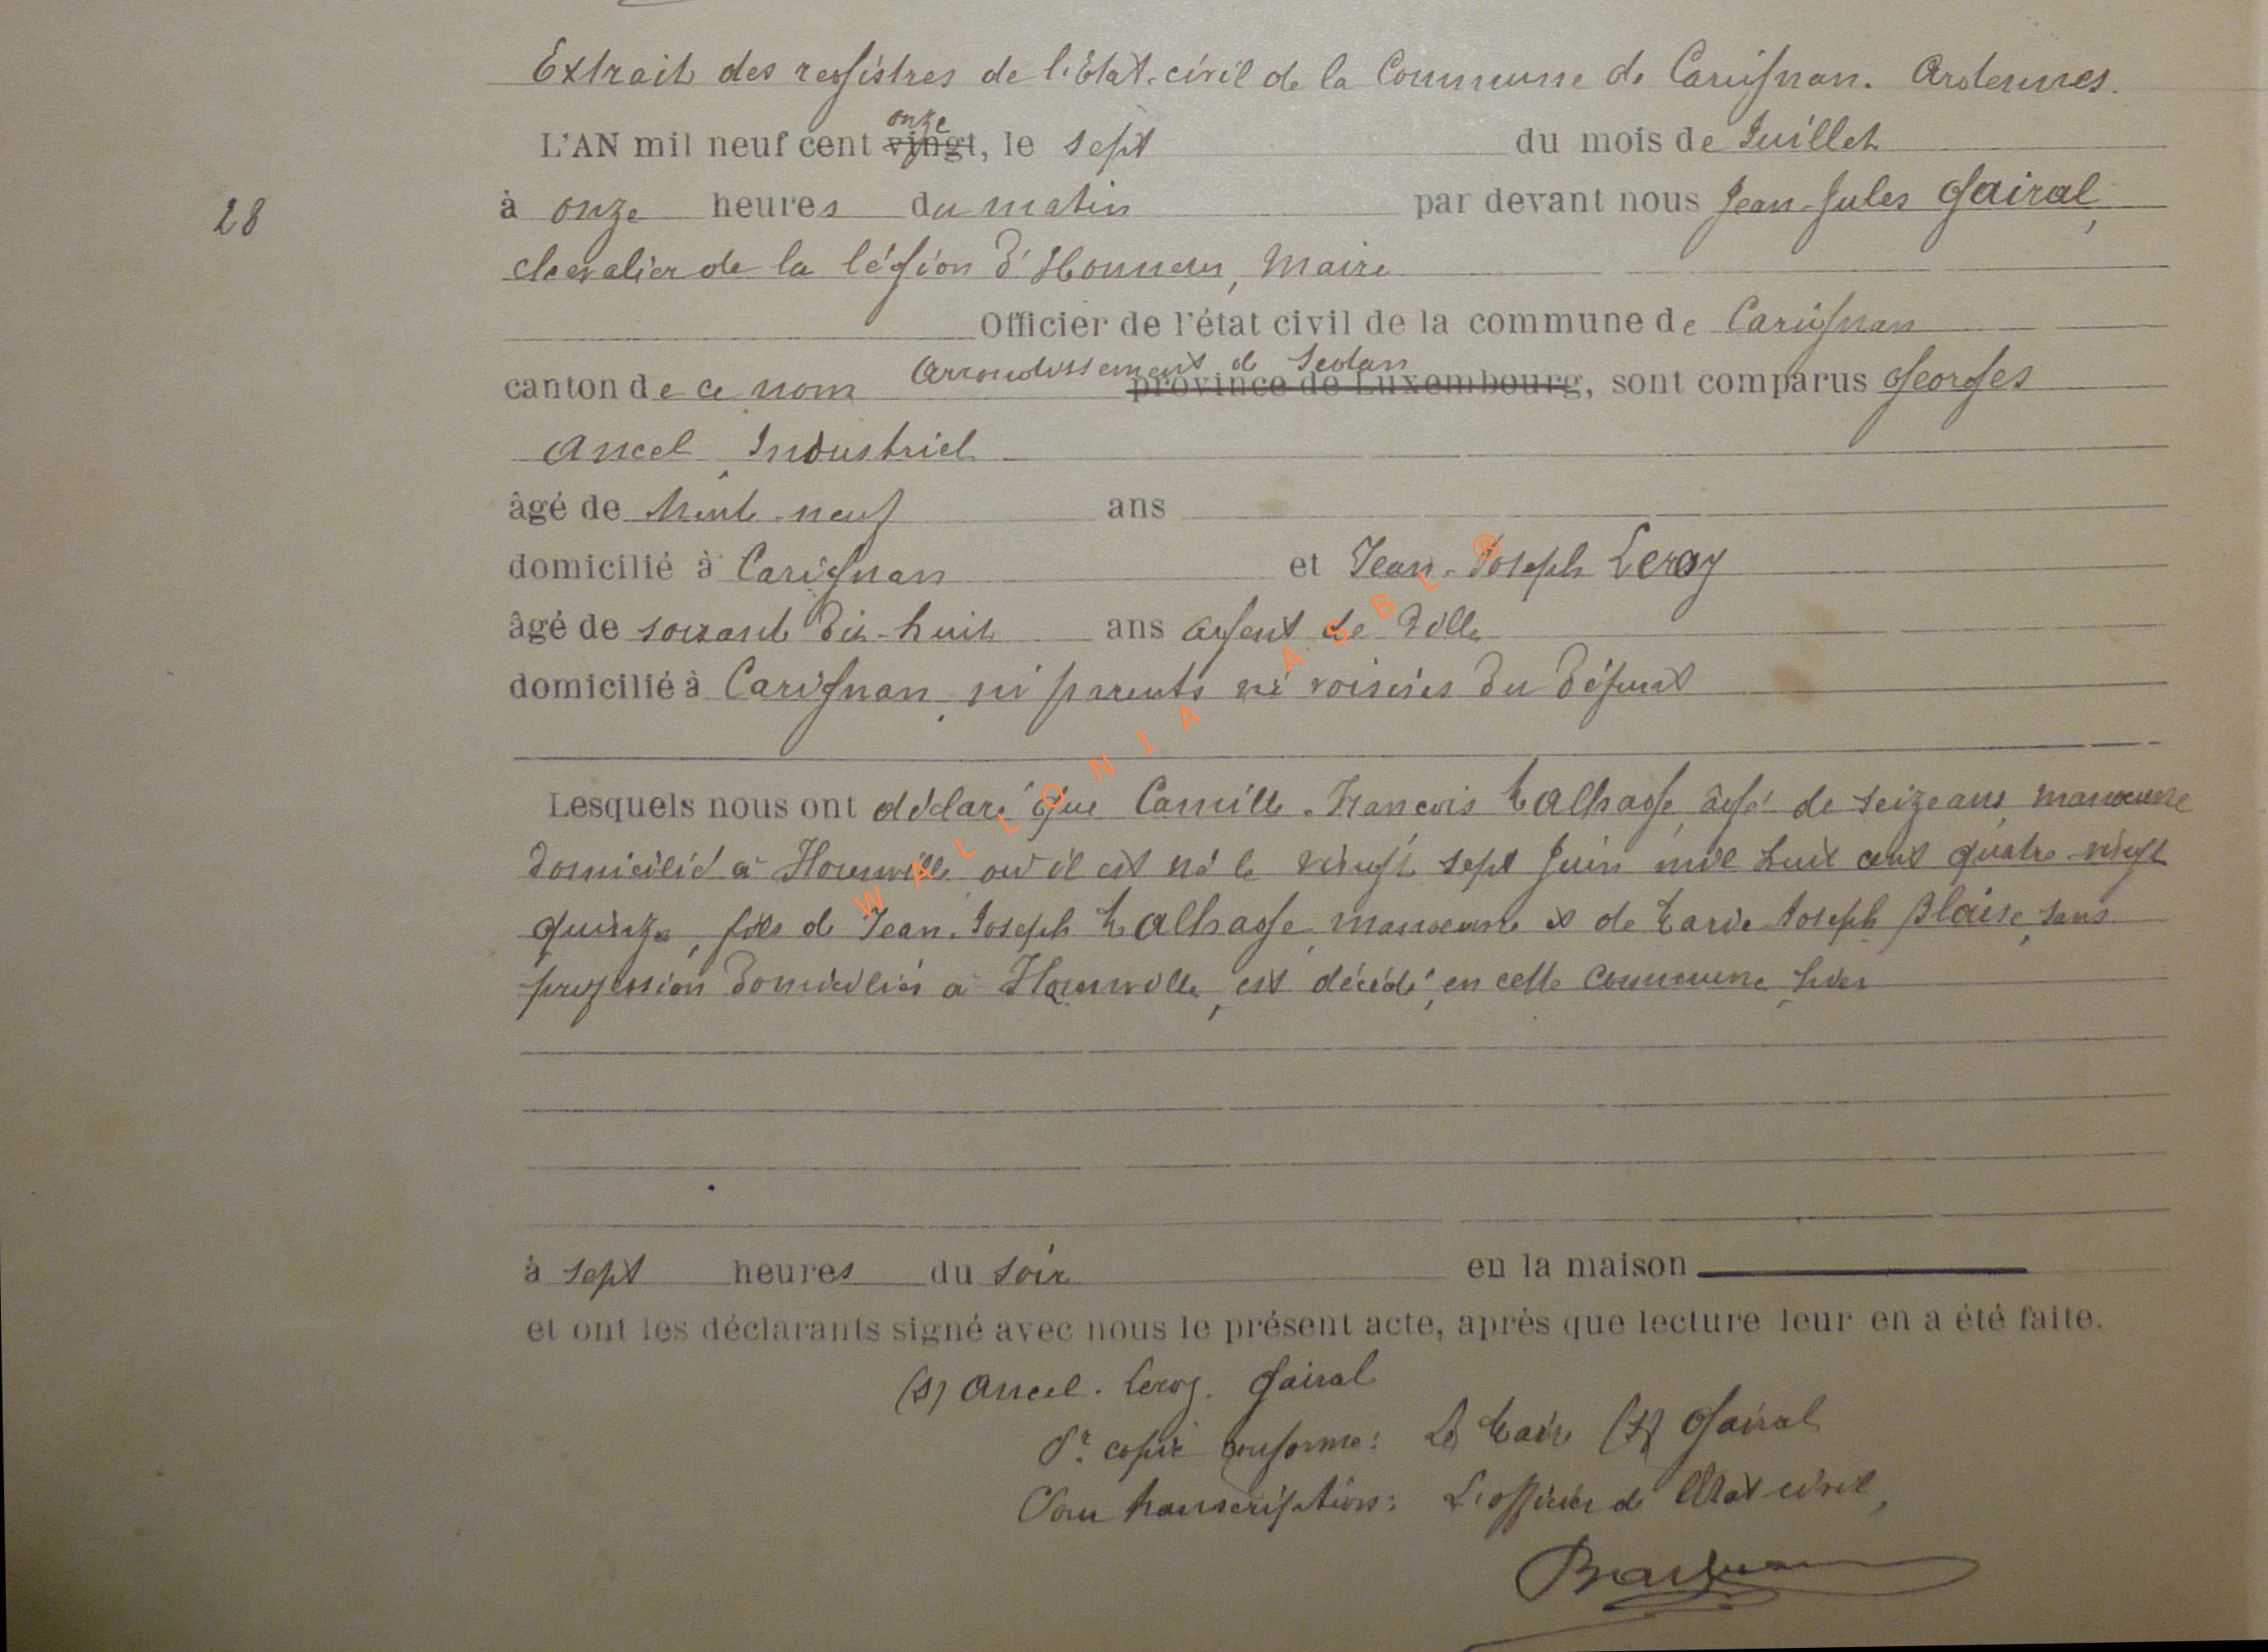 Extrait des registres de l'Etat-civil de la Commune de Carignan. Ardennes.
onze
L'AN mil neuf cent vingt, le sept du mois de Juillet
28
à onze heures du matin par devant nous Jean-Jules Gairal,
chevalier de la légion d'Honneur, Maire
Officier de l'état civil de la commune de Carignan
Arrondissement de Sedan
canton de ce nom province de Luxembourg, sont comparus Georges
Ancel, Industriel
âgé de trente-neuf ans
domicilié à Carignan et Jean-Joseph Leroy
âgé de soixante dix-huit ans agent de ville
domicilié à Carignan, ni parents ni voisins du défunt
Lesquels nous ont déclaré que Camille-François Malhage, âgé de seize ans, manoeuvre
domicilié à Houmville où il est né le vingt sept Juin mil huit cent quatre-vingt
quinze, fils de Jean-Joseph Malhage, manoeuvre et de Marie-Joseph Blaise, sans
profession domiciliés à Houmville, est décédé, en cette commune, hier
à sept heures du soir en la maison
et ont les déclarants signé avec nous le présent acte, après que lecture leur en a été faite.
(s) Ancel. Leroy. Gairal
Pr copie conforme: Le Maire (s) Gairal
Pour transcription: L'officier de l'Etat civil,
WALLONIA ASBL ®